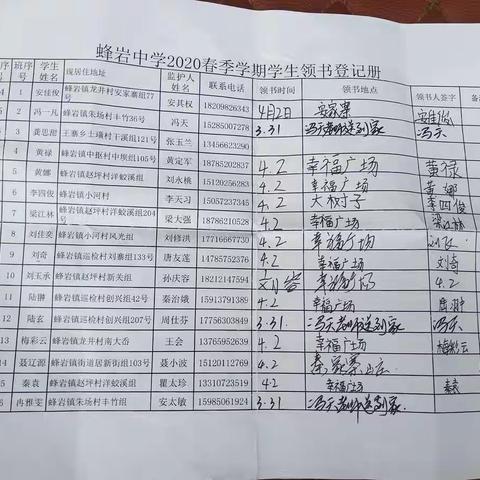 蜂岩中学2020春季学期学生领书登记册
序号 班序号 学生姓名 现居住地址 监护人姓名 联系电话 领书时间 领书地点 领书人签字 备
1 安佳俊 蜂岩镇龙井村安家寨组77号 安其权 18209826343 4月2日 安家寨
2 冯一凡 蜂岩镇朱场村丰竹36号 冯天 15285007278 3.31 冯天老师送到家 冯天
3 黄思甜 王寨乡土瑙村王溪组121号 张玉兰 13456623290
4 黄禄 蜂岩镇中枢村中坝组105号 黄定军 18785202837 4.2 幸福广场 黄禄
5 黄娜 蜂岩镇赵坪村洋蛟溪组 刘永桃 15120256283 4.2 幸福广场 黄娜
6 李四俊 蜂岩镇小河村 李天习 15057237345 4.2 大树子 李四俊
7 梁江林 蜂岩镇赵坪村洋蛟溪组204号 梁大强 18786210528 4.2 幸福广场 梁江林
8 刘佳奕 蜂岩镇小河村风光组 刘修洪 17716667730 4.2 幸福广场
9 刘奇 蜂岩镇巡检村刘寨组133号 唐友莲 14785752376 4.2 幸福广场 刘奇
10 刘玉承 蜂岩镇赵坪村新关组 孙庆容 18212147594 幸福广场 4.2
11 陆翀 蜂岩镇巡检村创兴组42号 秦治娥 15913791389 4.2 幸福广场
12 陆玄 蜂岩镇巡检村创兴组207号 周仕芬 17756303849 3.31 冯天老师送到家 冯天
13 梅彩云 蜂岩镇龙井村南大岙 王会 13765952639 4.2 幸福广场 梅彩云
14 聂辽源 蜂岩镇街道居新街组103号 聂小波 15120112769 4.2 秦家寨山庄
15 秦袁 蜂岩镇赵坪村洋蛟溪组 瞿太珍 13310723519 4.2 幸福广场
冉雅雯 蜂岩镇朱场村丰竹组 安太敏 15985061924 3.31 冯天老师送到家